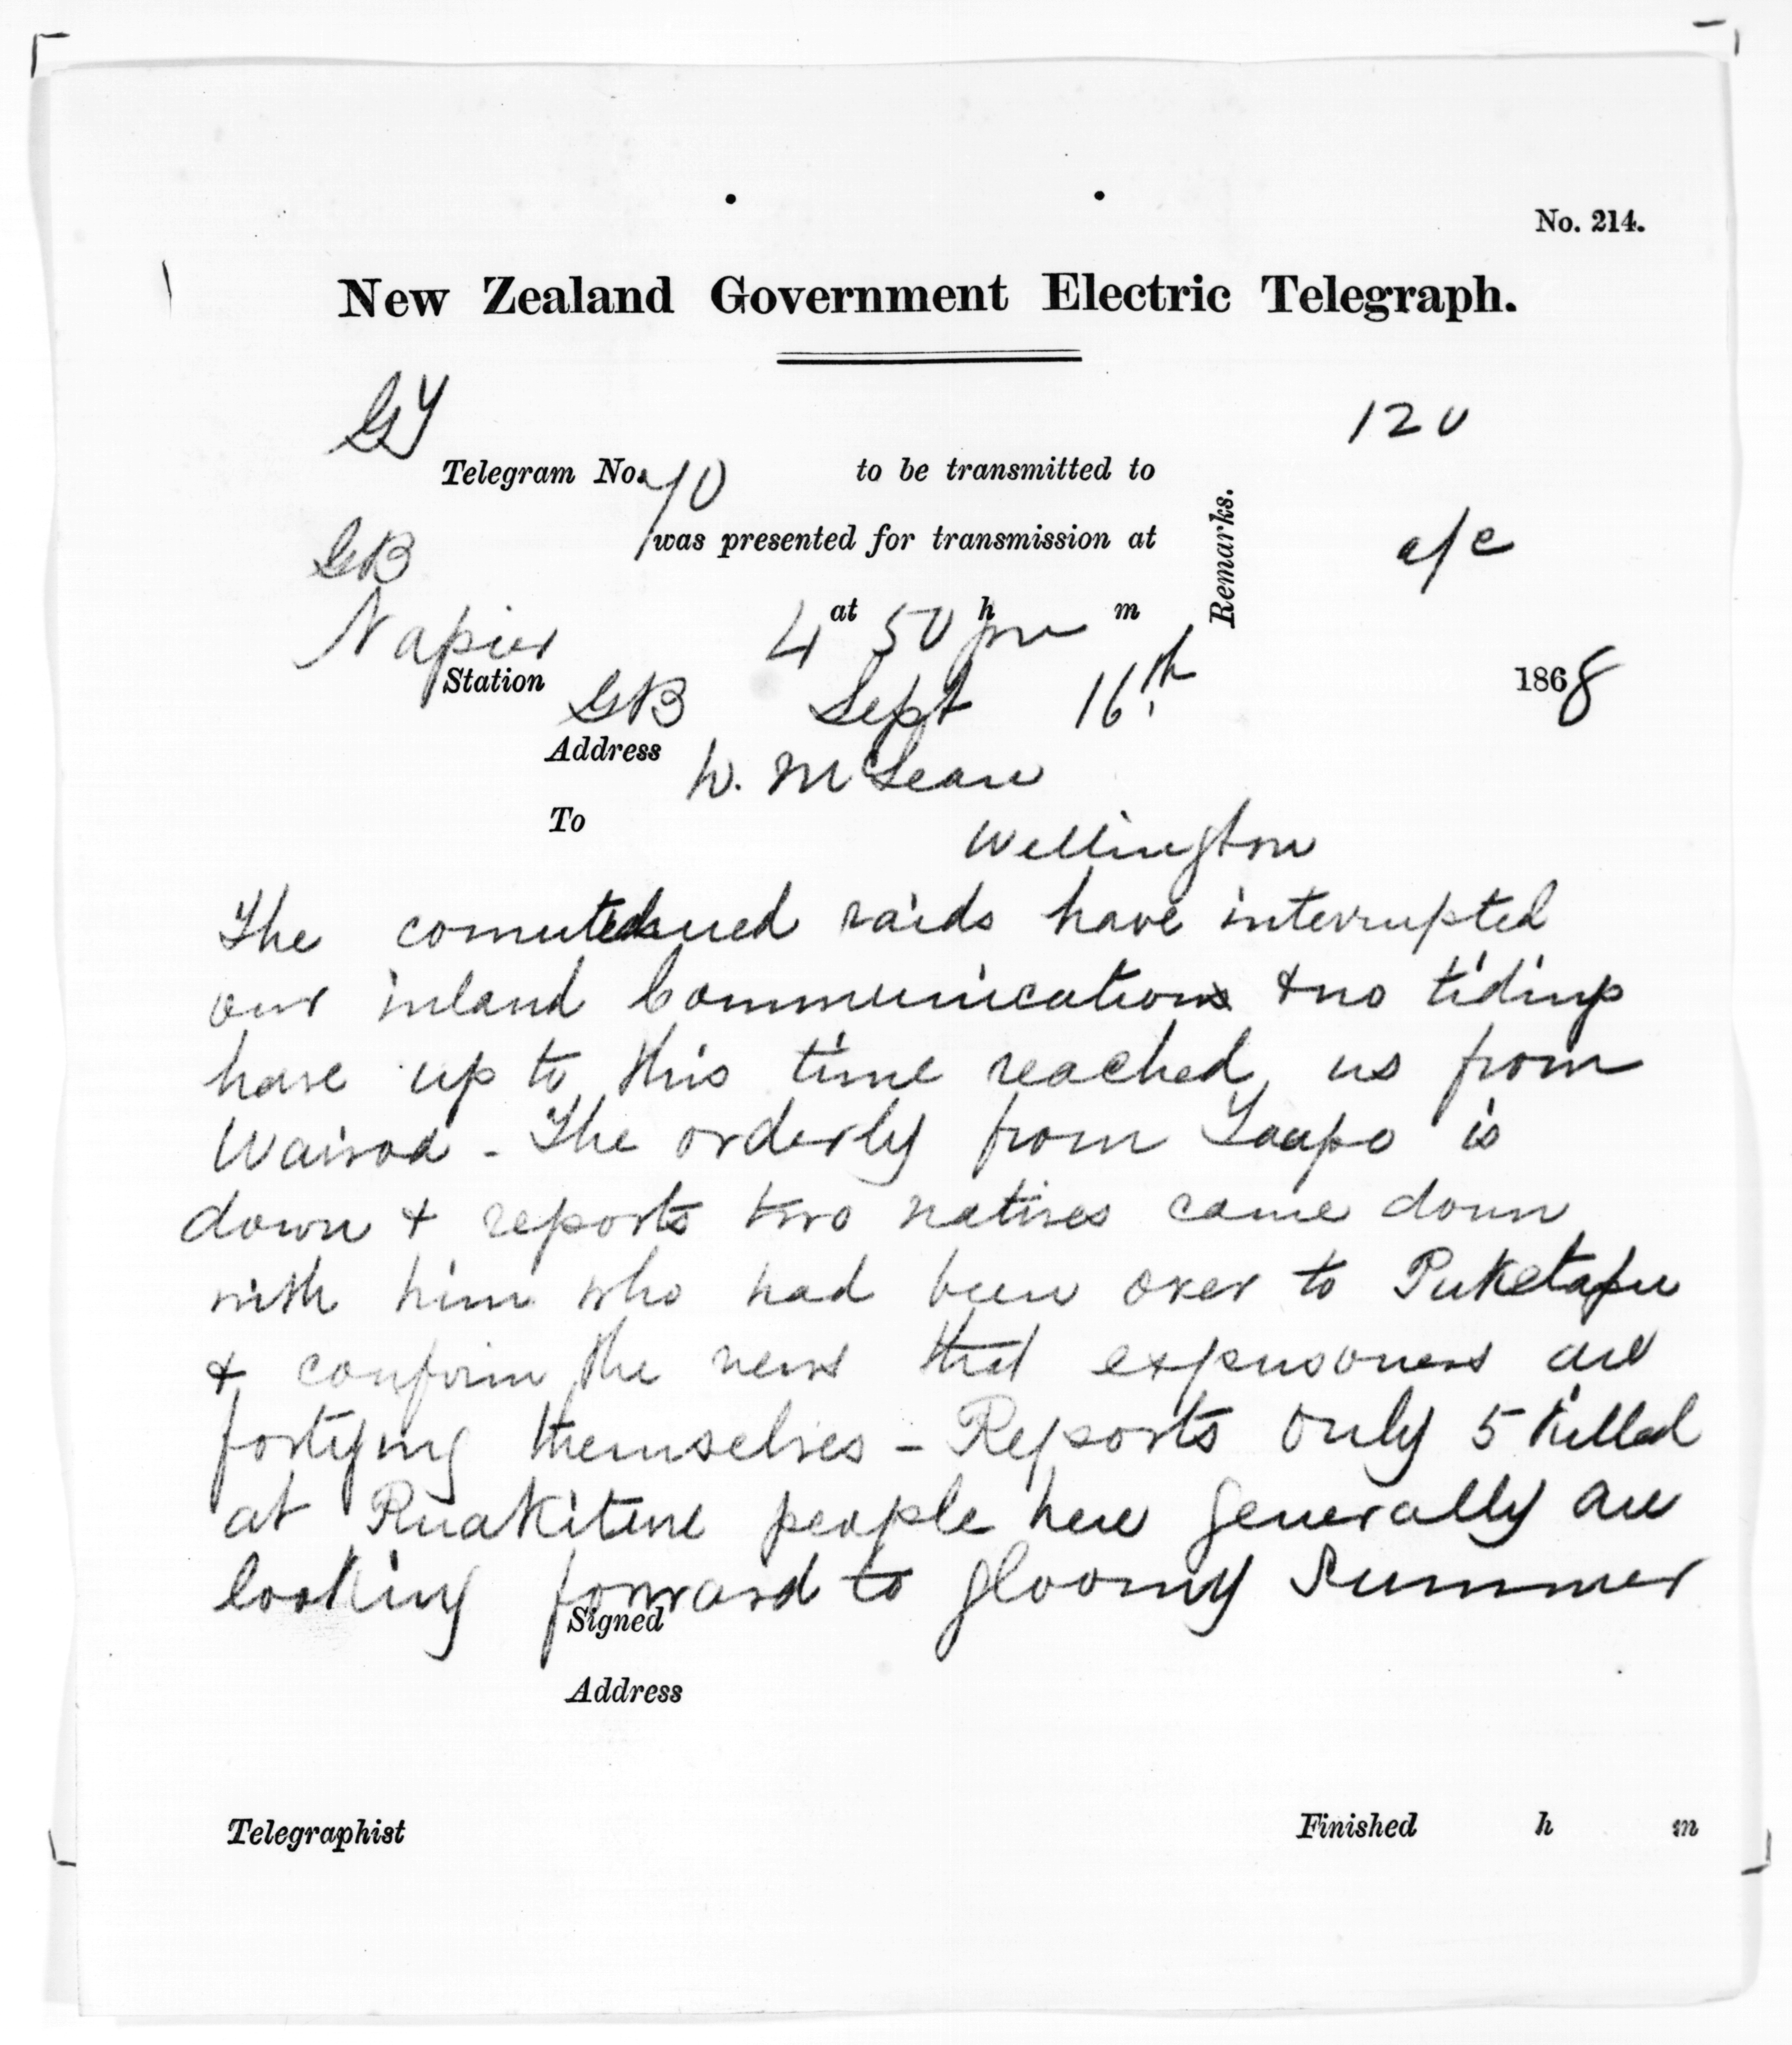 No. 214.
New Zealand Government Electric Telegraph.
GY
120
Telegram No. 70 to be transmitted to
was presented for transmission at
Remarks.
GB
a/c
Napier 4 at 50 h pm m
Station GB Sept 16th 1868
Address
D. McLean
To
Wellington
The raids have interrupted
our inland Communication & no tidings
have up to this time reached us from
Wairoa - The orderly from Taupo is
down & reports two natives came down
with him who had been over to Puketapu
& confirm the news that exprisoners are
fortifying themselves - Reports only 5 killed
at Ruakiture people here generally are
looking forward to gloomy Summer
Signed
Address
Telegraphist Finished h m